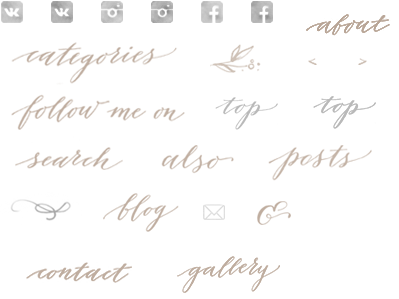 about
categories < >
follow me on top top
search also posts
blog &
contact gallery